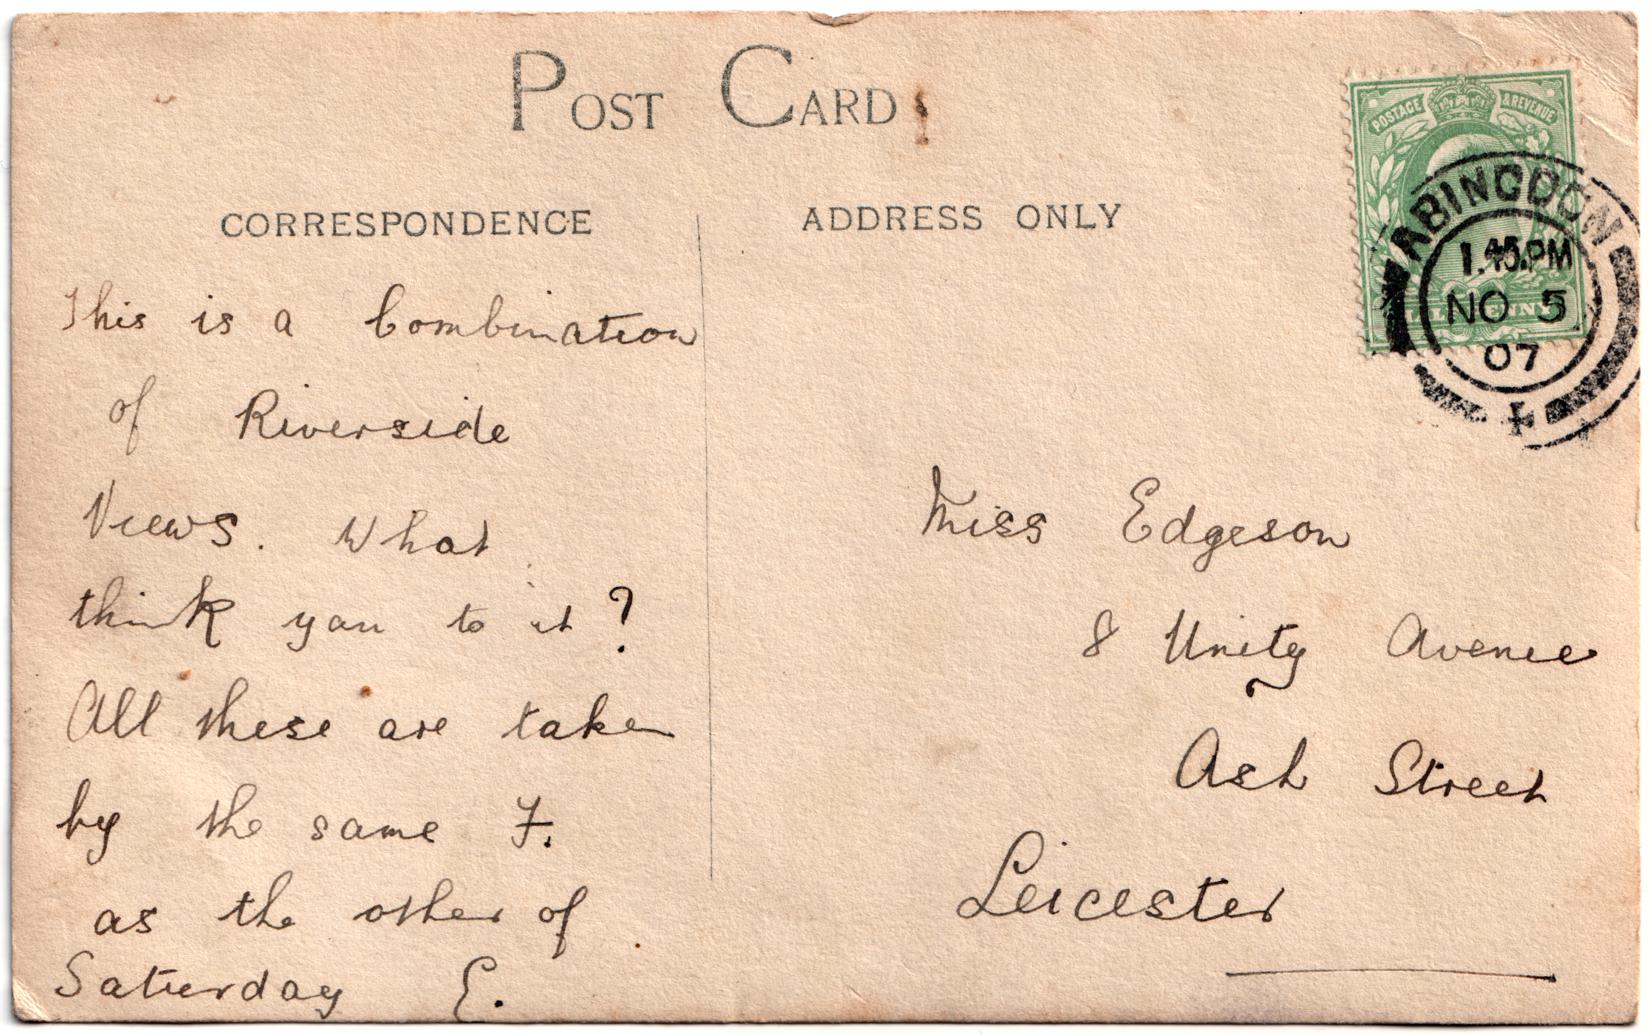 POST CARD
CORRESPONDENCE
ADDRESS ONLY
POSTAGE & REVENUE
ABINGDON
1.45.PM
NO 5
07
This is a Combination
of Riverside
Views. What
think you to it?
All these are taken
by the same F.
as the other of
Saturday E.
Miss Edgeson
8 Unity Avenue
Ash Street
Leicester